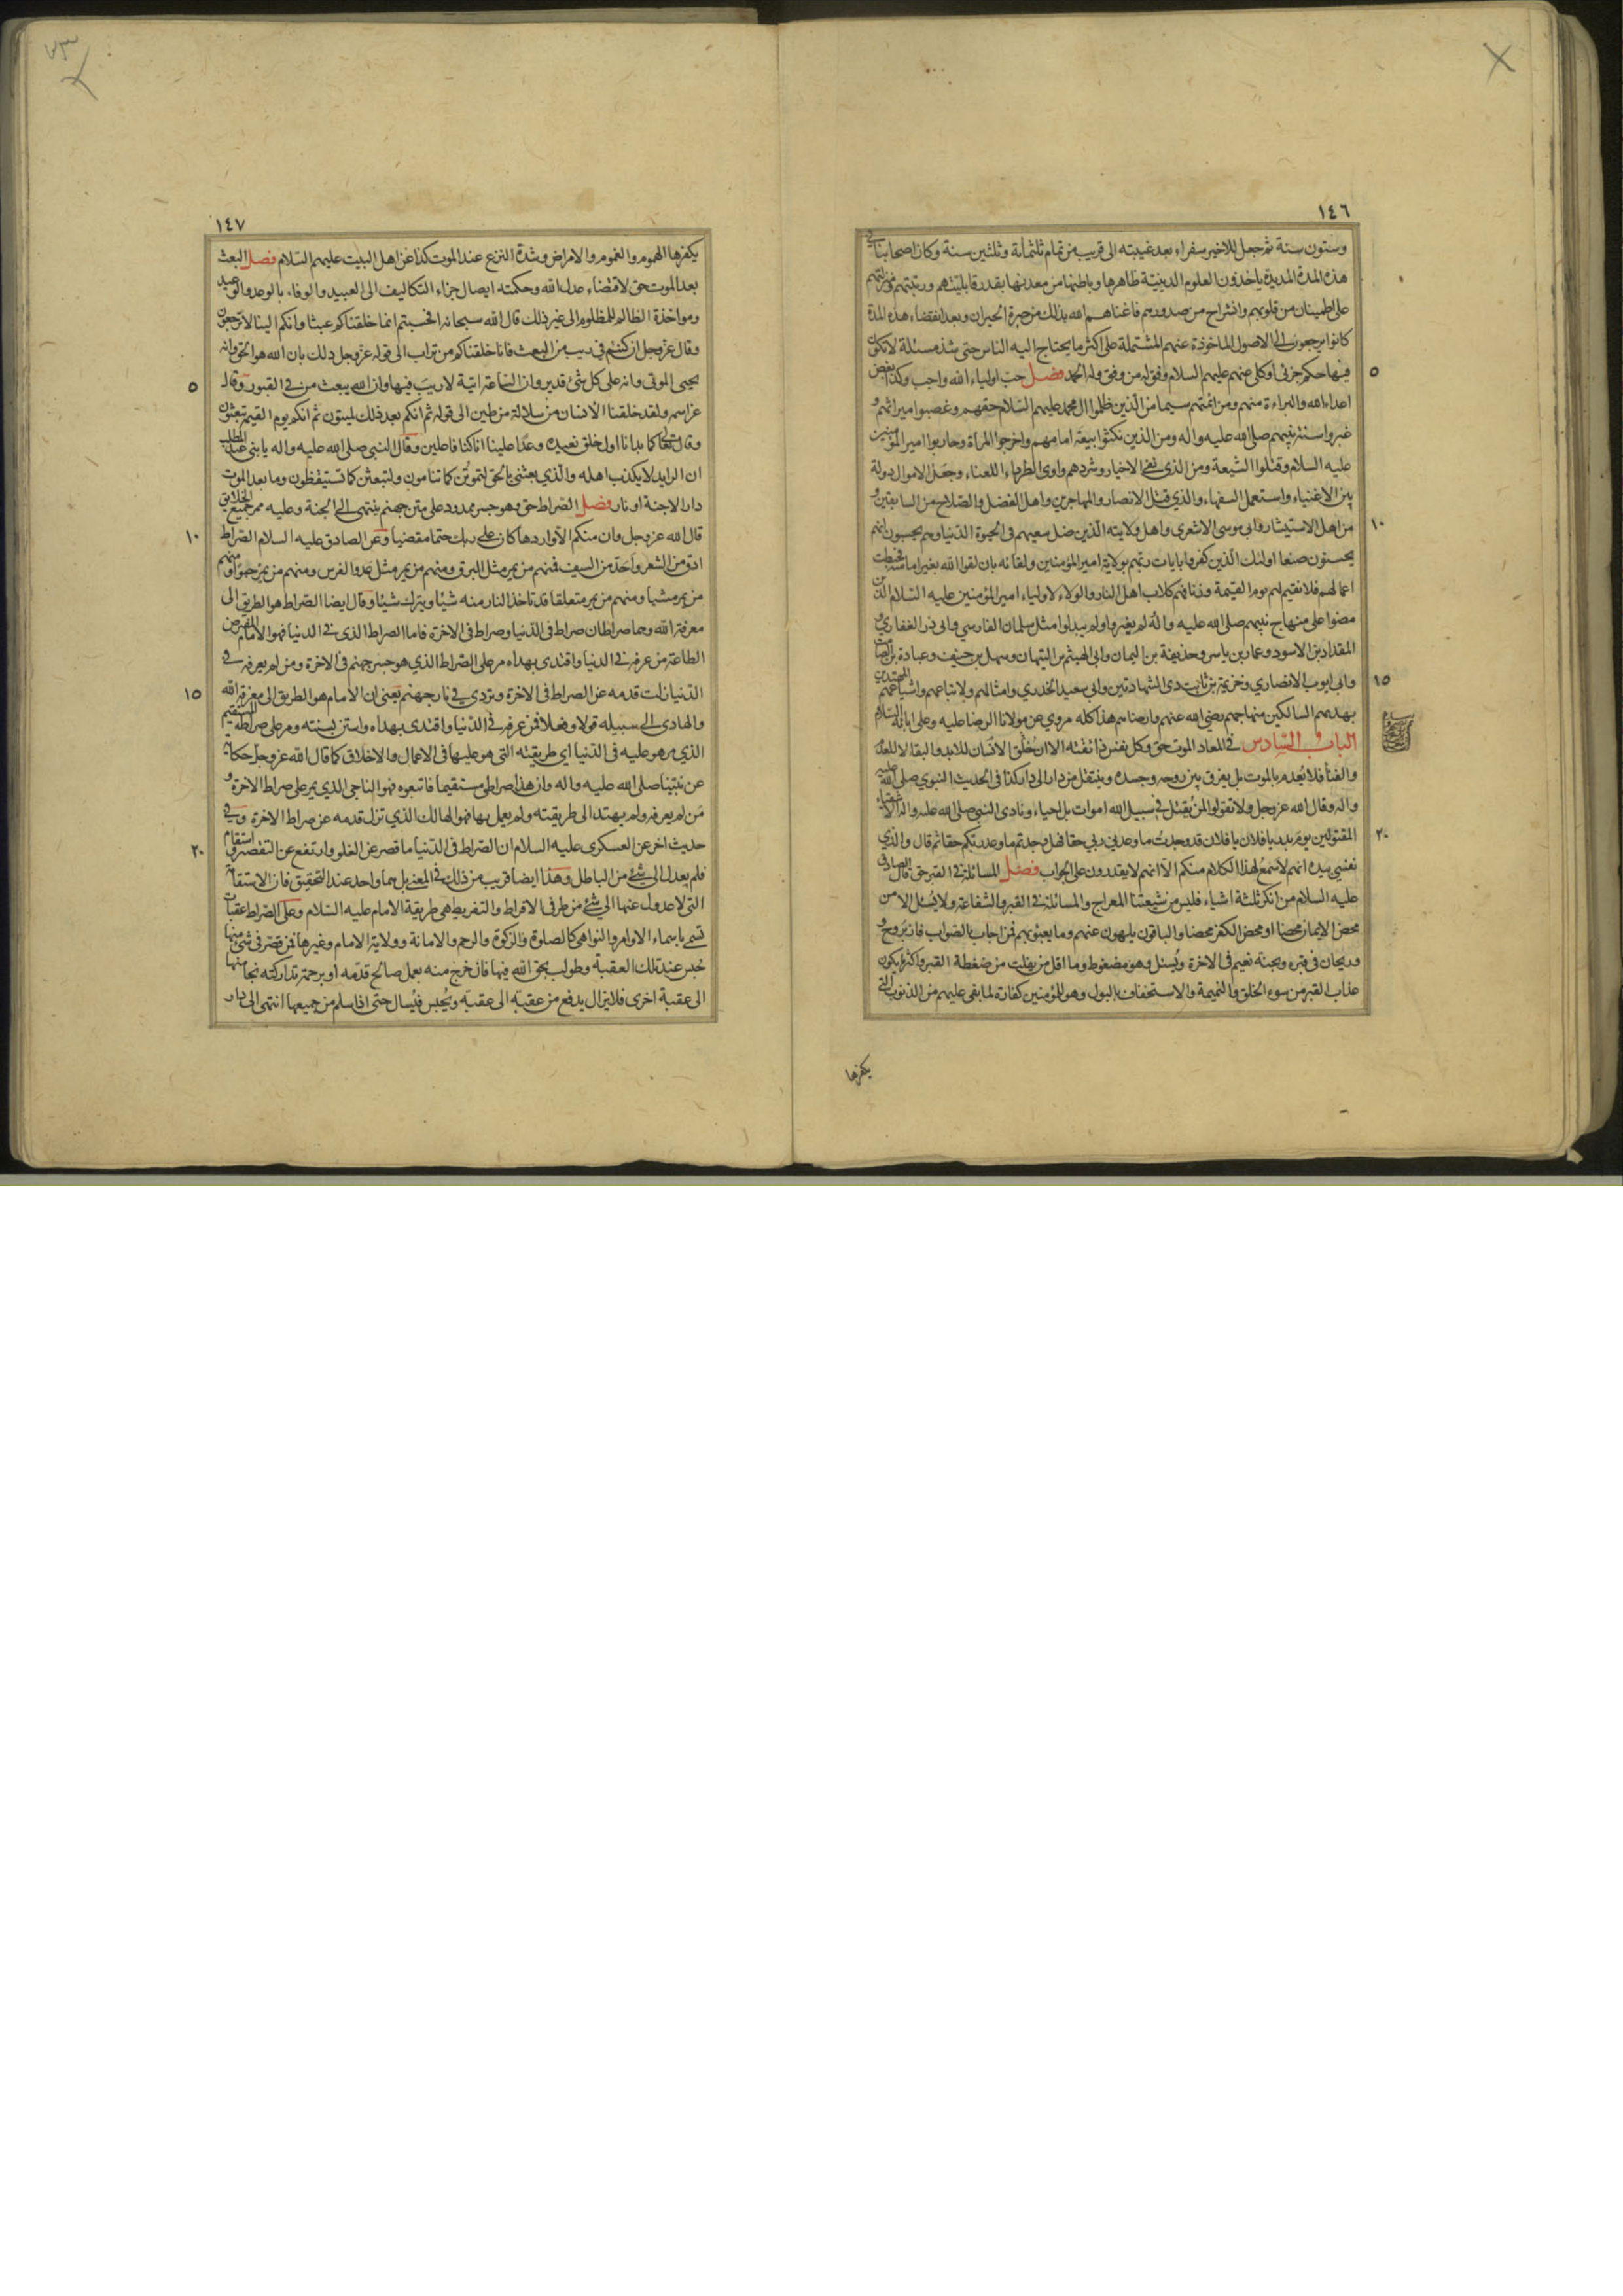 ١٤٦
وستون سنة ثم جعل للاخير سفراء بعد غيبته الى قريب من تمام ثلثمأئة وثلثين سنة وكان اصحابنا في
هذه المدة المديدة ياخذون العلوم الدينية ظاهرها وباطنها من معدنها بقدر قابليتهم ورتبتهم ومنزلتهم
على اطمينان من قلوبهم وانشراح من صدورهم فاغناهم الله بذلك من حيرة الحيران وبعد انقضاء هذه المدة
كانوا يرجعون الى الاصول الماخوذة عنهم المشتملة على اكثر ما يحتاج اليه الناس حتى شذ مسئلة لا تكون
٥
فيها حكم جزئى او كلى عنهم عليهم السلام وفق له من وفق وله الحمد فصل حب اولياء الله واجب وكذا بغض
اعداء الله والبراءة منهم ومن ائمتهم سيما من الذين ظلموا ال محمد عليهم السلام حقهم وغصبوا ميراثهم و
غيروا سنة نبيهم صلى الله عليه واله ومن الذين نكثوا بيعة امامهم واخرجوا المرأة وحاربوا امير المؤمنين
عليه السلام وقتلوا الشيعة ومن الذى نفى الاخيار وشردهم واوى الطرداء اللعناء وجعل الاموال دولة
بين الاغنياء واستعمل السفهاء والذي قتل الانصار والمهاجرين واهل الفضل والصلاح من السابقين و
١٠
من اهل الاستيثار وابى موسى الاشعرى واهل ولايته الذين ضل سعيهم فى الحيوة الدنيا وهم يحسبون انهم
يحسنون صنعا اولئك الذين كفروا بايات ربهم بولاية امير المؤمنين ولقائه بان لقوا الله بغير امامته فحبطت
اعمالهم فلا نقيم لهم يوم القيمة وزنا فهم كلاب اهل النار والولاء لاولياء امير المؤمنين عليه السلام الذين
مضوا على منهاج نبيهم صلى الله عليه واله ولم يغيروا ولم يبدلوا مثل سلمان الفارسي وابى ذر الغفاري و
المقداد بن الاسود وعمار بن ياسر وحذيفة بن اليمان وابى الهيثم بن التيهان وسهل بن حنيف وعبادة بن الصامت
١٥
وابى ايوب الانصاري وخزيمة بن ثابت ذى الشهادتين وابي سعيد الخدري وامثالهم ولاتباعهم واشياعهم المهتدين
بهديهم السالكين منهاجهم رضي الله عنهم وارضاهم هذا كله مروي عن مولانا الرضا عليه وعلى ابائه السلام
الباب السادس في المعاد الموت حق وكل نفس ذائقته الا ان خلق الانسان للابد والبقا لا للعدم
والفنا فلا يعدم بالموت بل يفرق بين روحه وجسده وينتقل من دار الى دار كذا فى الحديث النبوي صلى الله عليه
واله وقال الله عز وجل ولا تقولوا لمن يقتل في سبيل الله اموات بل احياء ونادى النبي صلى الله عليه واله
٢٠
المقتولين يوم بدر يا فلان يا فلان قد وجدت ما وعدنى ربي حقا فهل وجدتم ما وعد ربكم حقا ثم قال والذي
نفسي بيده انهم لاسمع لهذا الكلام منكم الا انهم لا يقدرون على الجواب فصل المسائلة فى القبر حق قال الصادق
عليه السلام من انكر ثلثة اشياء فليس من شيعتنا المعراج والمسائلة فى القبر والشفاعة ولا يسئل الا من
محض الايمان محضا او محض الكفر محضا والباقون يلهون عنهم وما يعبؤ بهم فمن اجاب بالصواب فاز بروح و
وريحان فى قبره وبجنة نعيم فى الاخرة ويسئل وهو مضغوط وما اقل من يفلت من ضغطة القبر واكثر ما يكون
عذاب القبر من سوء الخلق والنميمة والاستخفاف بالبول وهو للمؤمنين كفارة لما بقى عليهم من الذنوب التى
يكفرها
١٤٧
يكفرها الهموم والغموم والامراض وشدة النزع عند الموت كذا عن اهل البيت عليهم السلام فصل البعث
بعد الموت حق لاقتضاء عدل الله وحكمته ايصال جزاء التكاليف الى العبيد والوفاء بالوعد والوعيد
ومواخذة الظالم للمظلوم الى غير ذلك قال الله سبحانه افحسبتم انما خلقناكم عبثا وانكم الينا لا ترجعون
وقال عز وجل ان كنتم فى ريب من البعث فانا خلقناكم من تراب الى قوله عز وجل ذلك بان الله هو الحق وانه
٥
يحيى الموتى وانه على كل شئ قدير وان الساعة اتية لا ريب فيها وان الله يبعث من في القبور وقال
عز اسمه ولقد خلقنا الانسان من سلالة من طين الى قوله ثم انكم بعد ذلك لميتون ثم انكم يوم القيمة تبعثون
وقال تعالى كما بدانا اول خلق نعيده وعدا علينا انا كنا فاعلين وقال النبى صلى الله عليه واله يا بنى عبد المطلب
ان الرايد لا يكذب اهله والذي بعثنى بالحق لتموتن كما تنامون ولتبعثن كما تستيقظون وما بعد الموت
دار الا جنة او نار فصل الصراط حق وهو جسر ممدود على متن جهنم ينتهى الى الجنة وعليه ممر جميع الخلايق
١٠
قال الله عز وجل وان منكم الا واردها كان على ربك حتما مقضيا وعن الصادق عليه السلام الصراط
ادق من الشعر واحد من السيف فمنهم من يمر مثل البرق ومنهم من يمر مثل عدو الفرس ومنهم من يمر حبوا ومنهم
من يمر مشيا ومنهم من يمر متعلقا قد تاخذ النار منه شيئا ويترك شيئا وقال ايضا الصراط هو الطريق الى
معرفة الله وهما صراطان صراط فى الدنيا وصراط فى الاخرة فاما الصراط الذى فى الدنيا فهو الامام المفترض
الطاعة من عرفه فى الدنيا واقتدى بهداه مر على الصراط الذي هو جسر جهنم فى الاخرة ومن لم يعرفه في
١٥
الدنيا زلت قدمه عن الصراط فى الاخرة وتردي في نار جهنم يعنى ان الامام هو الطريق الى معرفة الله
والهادى الى سبيله قولا وفعلا فمن عرفه في الدنيا واقتدى بهداه واستن بسنته ومر على صراطه المستقيم
الذي هو عليه فى الدنيا اي طريقته التى هو عليها فى الاعمال والاخلاق كما قال الله عز وجل حكاية
عن نبينا صلى الله عليه واله وان هذا صراطى مستقيما فاتبعوه فهو الناجى الذي يمر على صراط الاخرة و
من لم يعرفه ولم يهتد الى طريقته ولم يعمل بها فهو الهالك الذي تزل قدمه عن صراط الاخرة وفي
٢٠
حديث اخر عن العسكرى عليه السلام ان الصراط فى الدنيا ما قصر عن الغلو وارتفع عن التقصير واستقام
فلم يعدل الى شئ من الباطل وهذا ايضا قريب من ذلك في المعنى بل هما واحد عند التحقيق فان الاستقامة
التى لا عدول عنها الى شئ من طرفى الافراط والتفريط هى طريقة الامام عليه السلام وعلى الصراط عقبات
تسمى باسماء الاوامر والنواهى كالصلوة والزكوة والرحم والامانة وولاية الامام وغيرها فمن قصر فى شئ منها
حبس عند تلك العقبة وطولب بحق الله فيها فان خرج منه بعمل صالح قدمه او برحمة تداركته نجا منها
الى عقبة اخرى فلا يزال يدفع من عقبة الى عقبة ويحبس فيسال حتى اذا سلم من جميعها انتهى الى دار